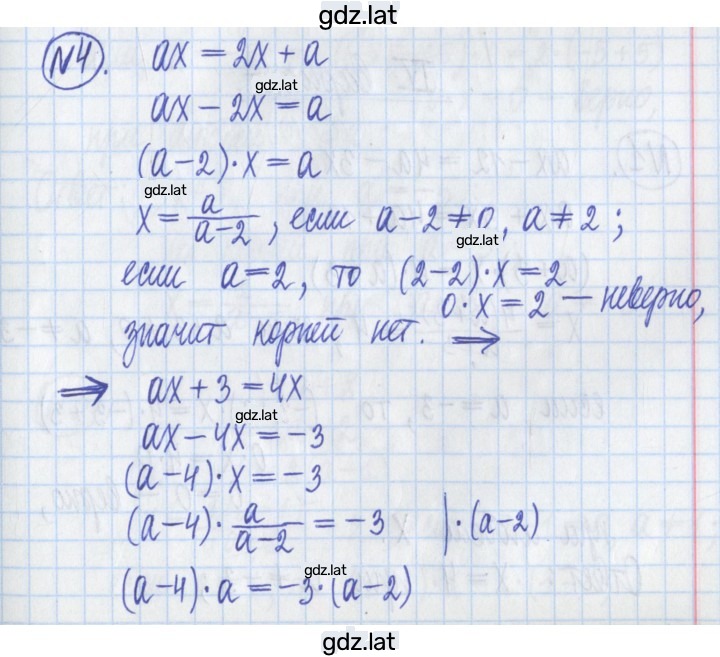 gdz.lat
№4). ax = 2x + a
gdz.lat
ax - 2x = a
(a-2)·x = a
gdz.lat
x = a/(a-2), если a-2≠0, a≠2;
gdz.lat
если a=2, то (2-2)·x=2
0·x=2 — неверно,
значит корней нет. ⟹
⟹ ax+3=4x
gdz.lat
ax-4x=-3
(a-4)·x=-3
(a-4)·a/(a-2)=-3 |·(a-2)
gdz.lat
(a-4)·a=-3·(a-2)
gdz.lat